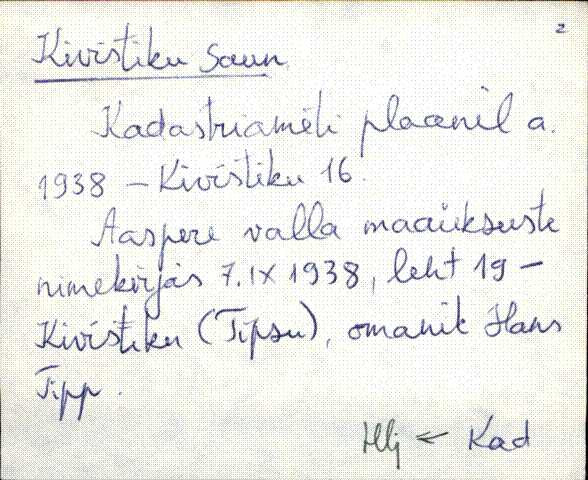 2
Kivistiku Saun
Kadastriameti plaanil a.
1938 – Kivistiku 16.
Aaspere valla maaüksuste
nimekirjas 7.IX 1938, leht 19 –
Kivistiku (Tipsu), omanik Hans
Tipp.
Hlj ← Kad